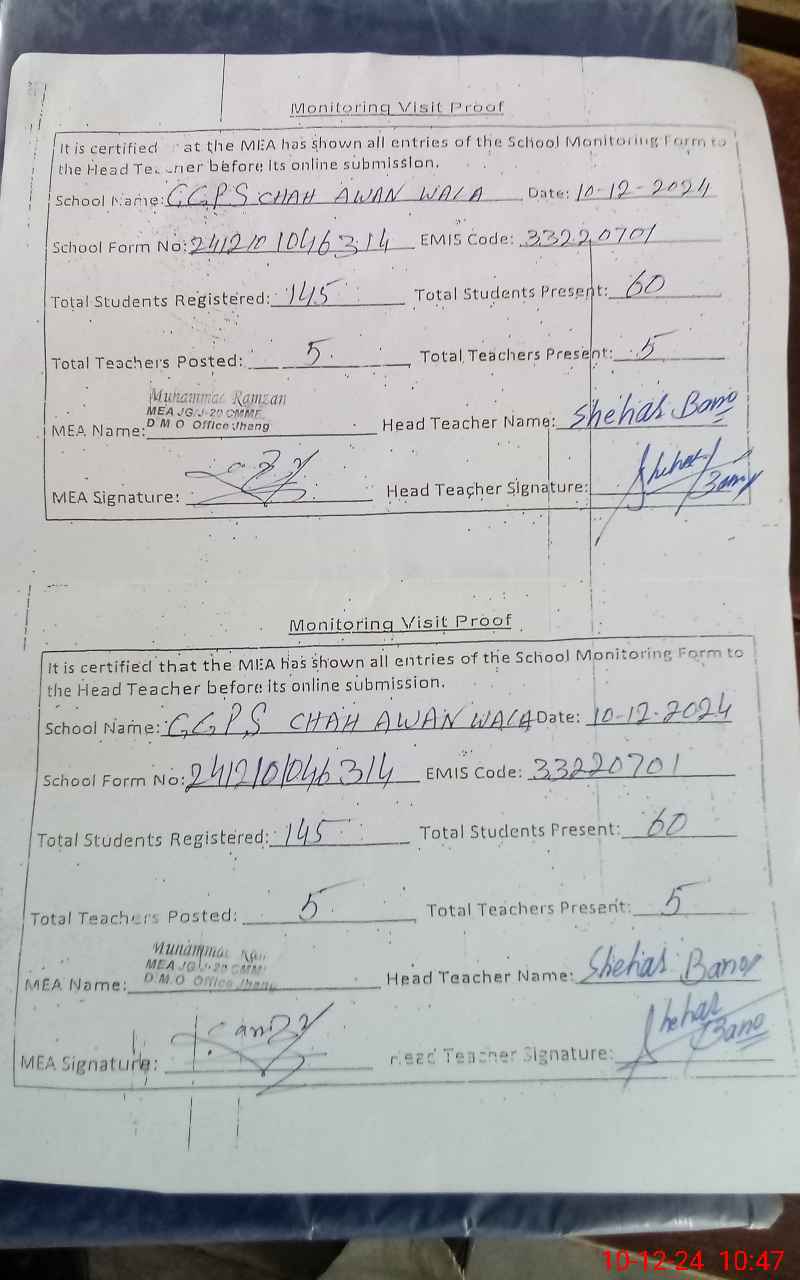 Monitoring Visit Proof
It is certified at the MEA has shown all entries of the School Monitoring Form to
the Head Teacher before its online submission.
School Name: G.G.P.S CHAH AWAN WALA Date: 10-12-2024
School Form No: 2412101046314 EMIS Code: 33220701
Total Students Registered: 145 Total Students Present: 60
Total Teachers Posted: 5 Total Teachers Present: 5
Muhammad Ramzan
MEA JG/J-20 CMMF
D.M.O Office Jhang
MEA Name: Head Teacher Name: Shehar Bano
MEA Signature: Head Teacher Signature: Shehar Bano
Monitoring Visit Proof
It is certified that the MEA has shown all entries of the School Monitoring Form to
the Head Teacher before its online submission.
School Name: G.G.P.S CHAH AWAN WALA Date: 10-12-2024
School Form No: 2412101046314 EMIS Code: 33220701
Total Students Registered: 145 Total Students Present: 60
Total Teachers Posted: 5 Total Teachers Present: 5
Muhammad
MEA JG/J-20 CMMF
D.M.O Office Jhang
MEA Name: Head Teacher Name: Shehar Bano
MEA Signature: Head Teacher Signature: Shehar Bano
10-12-24 10:47